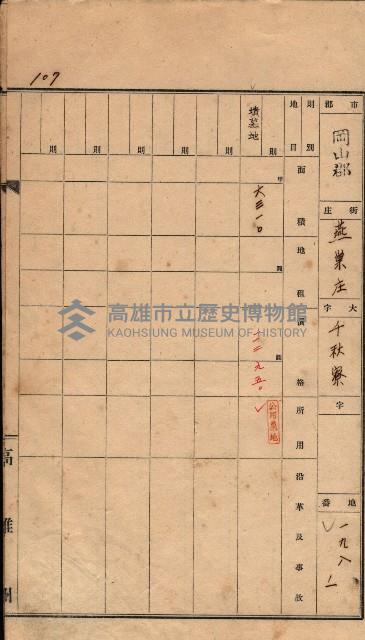 107
市郡 岡山郡
街庄 燕巢庄
大字 千秋寮
字
地番 一九八 一
則別
地目
面積
地租
價格
所用
沿革及事故
墳墓地
則
則
則
則
則
則
甲
六三一〇
圓
圓
一二九五〇
公用墓地
高雄州
高雄市立歷史博物館
KAOHSIUNG MUSEUM OF HISTORY